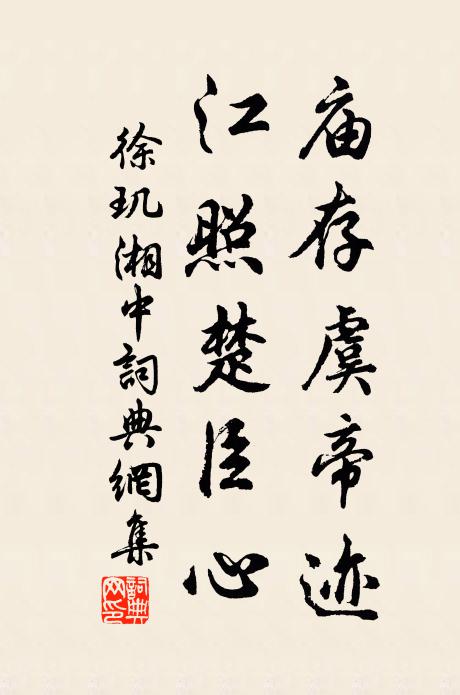 庙存虞帝迹
江照楚臣心
徐玑湘中詞典網集
詞典
网印